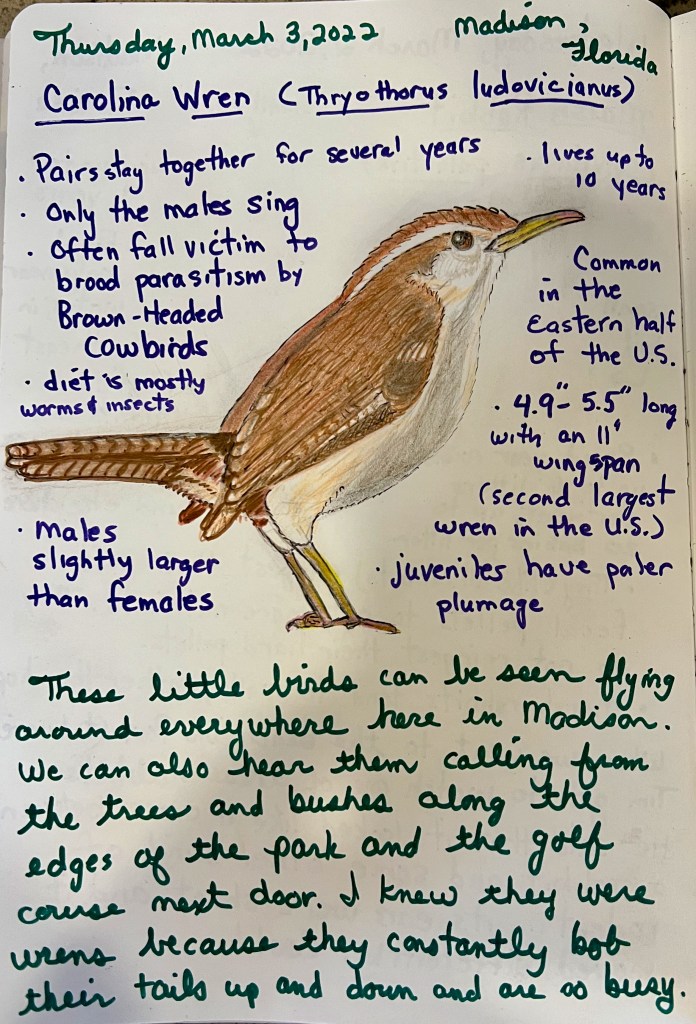 Thursday, March 3, 2022
Madison,
Florida
Carolina Wren (Thryothorus ludovicianus)
· Pairs stay together for several years
· Only the males sing
· Often fall victim to
brood parasitism by
Brown-Headed
Cowbirds
· diet is mostly
worms & insects
· lives up to
10 years
Common
in the
Eastern half
of the U.S.
· 4.9"- 5.5" long
with an 11"
wingspan
(second largest
wren in the U.S.)
· Males
slightly larger
than females
· juveniles have paler
plumage
These little birds can be seen flying
around everywhere here in Madison.
We can also hear them calling from
the trees and bushes along the
edges of the park and the golf
course next door. I knew they were
wrens because they constantly bob
their tails up and down and are so busy.